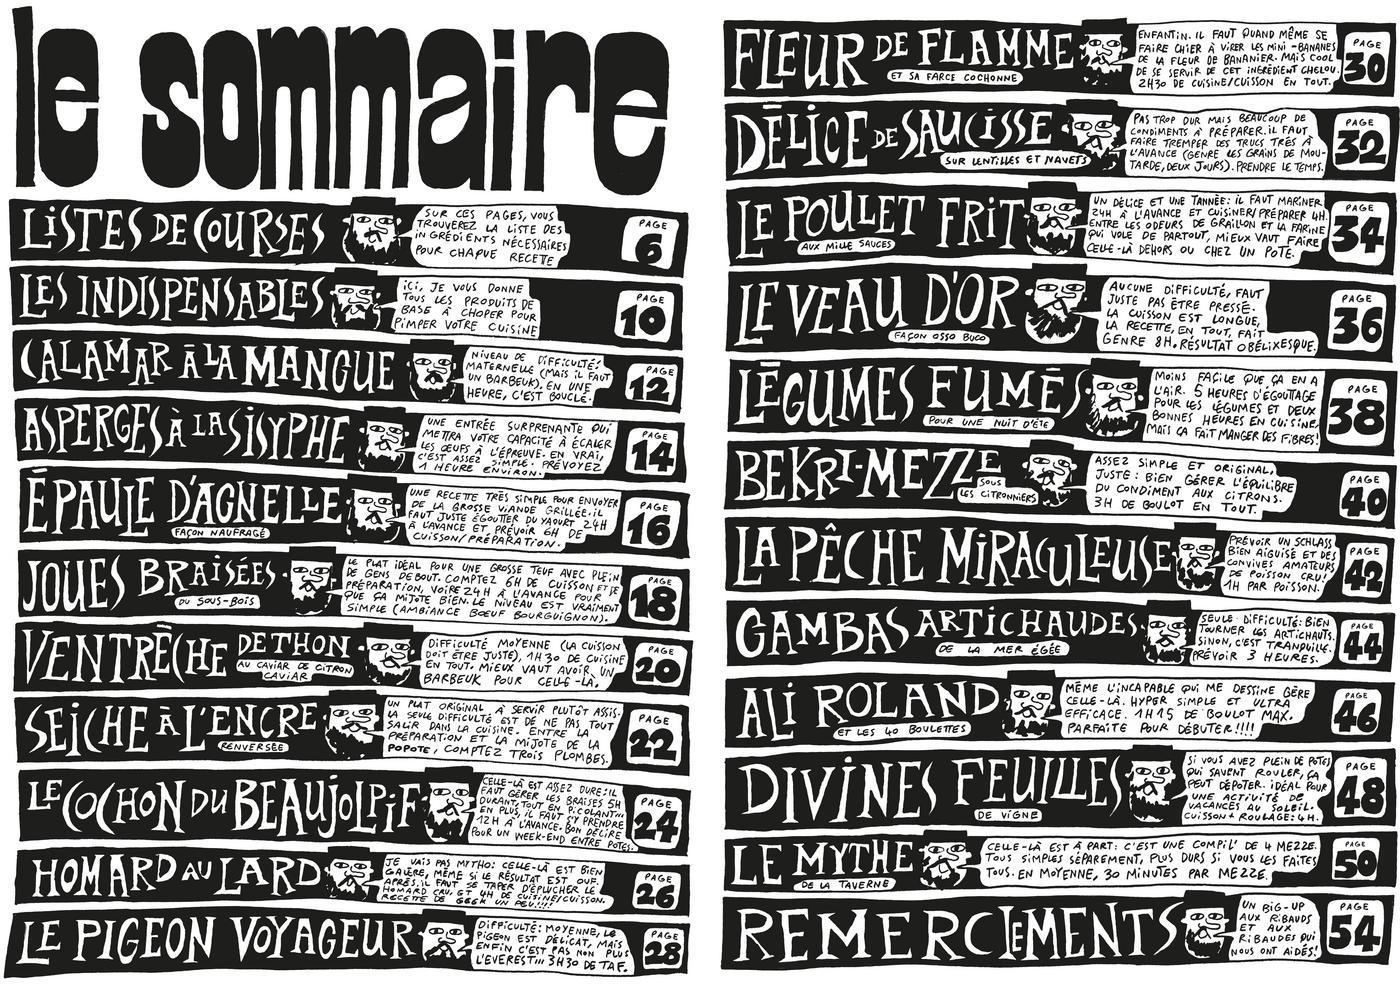 le sommaire
LISTES DE COURSES
SUR CES PAGES, VOUS
TROUVEREZ LA LISTE DES
INGRÉDIENTS NÉCESSAIRES
POUR CHAQUE RECETTE
PAGE
6
LES INDISPENSABLES
ICI, JE VOUS DONNE
TOUS LES PRODUITS DE
BASE À CHOPER POUR
PIMPER VOTRE CUISINE
PAGE
10
CALAMAR À LA MANGUE
NIVEAU DE DIFFICULTÉ:
MATERNELLE (MAIS IL FAUT
UN BARBEUK). EN UNE
HEURE, C'EST BOUCLÉ.
PAGE
12
ASPERGES À LA SISYPHE
UNE ENTRÉE SURPRENANTE QUI
METTRA VOTRE CAPACITÉ À ÉCALER
LES ŒUFS À L'ÉPREUVE. EN VRAI,
C'EST ASSEZ SIMPLE. PRÉVOYEZ
1 HEURE ENVIRON.
PAGE
14
ÉPAULE D'AGNELLE
FAÇON NAUFRAGÉ
UNE RECETTE TRÈS SIMPLE POUR ENVOYER
DE LA GROSSE VIANDE GRILLÉE. IL
FAUT JUSTE ÉGOUTTER DU YAOURT 24H
À L'AVANCE ET PRÉVOIR 6H DE
CUISSON/PRÉPARATION.
PAGE
16
JOUES BRAISÉES
DU SOUS-BOIS
LE PLAT IDÉAL POUR UNE GROSSE TEUF AVEC PLEIN
DE GENS DEBOUT. COMPTEZ 6H DE CUISSON ET DE
PRÉPARATION, VOIRE 24H À L'AVANCE POUR
QUE ÇA MIJOTE BIEN. LE NIVEAU EST VRAIMENT
SIMPLE (AMBIANCE BŒUF BOURGUIGNON).
PAGE
18
VENTRÈCHE DE THON
AU CAVIAR DE CITRON
CAVIAR
DIFFICULTÉ MOYENNE (LA CUISSON
DOIT ÊTRE JUSTE), 1H30 DE CUISINE
EN TOUT. MIEUX VAUT AVOIR UN
BARBEUK POUR CELLE-LÀ.
PAGE
20
SEICHE À L'ENCRE
RENVERSÉE
UN PLAT ORIGINAL, À SERVIR PLUTÔT ASSIS.
LA SEULE DIFFICULTÉ EST DE NE PAS TOUT
SALIR DANS LA CUISINE. ENTRE LA
PRÉPARATION ET LA MIJOTE DE LA
POPOTE, COMPTEZ TROIS PLOMBES.
PAGE
22
LE COCHON DU BEAUJOLPIF
CELLE-LÀ EST ASSEZ DURE: IL
FAUT GÉRER LES BRAISES 5H
DURANT, TOUT EN PICOLANT...
EN PLUS, IL FAUT S'Y PRENDRE
12H À L'AVANCE. BON DÉLIRE
POUR UN WEEK-END ENTRE POTES.
PAGE
24
HOMARD AU LARD
JE VAIS PAS MYTHO: CELLE-LÀ EST BIEN
GALÈRE, MÊME SI LE RÉSULTAT EST OUF.
APRÈS, IL FAUT SE TAPER D'ÉPLUCHER LE
HOMARD CRU, ET 4H DE CUISINE/CUISSON.
RECETTE DE GEEK UN PEU!!!!
PAGE
26
LE PIGEON VOYAGEUR
DIFFICULTÉ: MOYENNE, LE
PIGEON EST DÉLICAT, MAIS
ENFIN C'EST PAS NON PLUS
L'EVEREST!!! 3H30 DE TAF.
PAGE
28
FLEUR DE FLAMME
ET SA FARCE COCHONNE
ENFANTIN. IL FAUT QUAND MÊME SE
FAIRE CHIER À VIRER LES MINI-BANANES
DE LA FLEUR DE BANANIER. MAIS COOL
DE SE SERVIR DE CET INGRÉDIENT CHELOU.
2H30 DE CUISINE/CUISSON EN TOUT.
PAGE
30
DÉLICE DE SAUCISSE
SUR LENTILLES ET NAVETS
PAS TROP DUR MAIS BEAUCOUP DE
CONDIMENTS À PRÉPARER. IL FAUT
FAIRE TREMPER DES TRUCS TRÈS À
L'AVANCE (GENRE LES GRAINS DE MOU-
TARDE, DEUX JOURS). PRENDRE LE TEMPS.
PAGE
32
LE POULET FRIT
AUX MILLE SAUCES
UN DÉLICE ET UNE TANNÉE: IL FAUT MARINER
24H À L'AVANCE ET CUISINER/PRÉPARER 4H.
ENTRE LES ODEURS DE GRAILLON ET LA FARINE
QUI VOLE DE PARTOUT, MIEUX VAUT FAIRE
CELLE-LÀ DEHORS OU CHEZ UN POTE.
PAGE
34
LE VEAU D'OR
FAÇON OSSO BUCO
AUCUNE DIFFICULTÉ, FAUT
JUSTE PAS ÊTRE PRESSÉ.
LA CUISSON EST LONGUE,
LA RECETTE, EN TOUT, FAIT
GENRE 8H. RÉSULTAT OBÉLIXESQUE.
PAGE
36
LÉGUMES FUMÉS
POUR UNE NUIT D'ÉTÉ
MOINS FACILE QUE ÇA EN A
L'AIR. 5 HEURES D'ÉGOUTTAGE
POUR LES LÉGUMES ET DEUX
BONNES HEURES EN CUISINE,
MAIS ÇA FAIT MANGER DES FIBRES!
PAGE
38
BEKRI-MEZZE
SOUS
LES CITRONNIERS
ASSEZ SIMPLE ET ORIGINAL,
JUSTE: BIEN GÉRER L'ÉQUILIBRE
DU CONDIMENT AUX CITRONS.
3H DE BOULOT EN TOUT.
PAGE
40
LA PÊCHE MIRACULEUSE
PRÉVOIR UN SCHLASS
BIEN AIGUISÉ ET DES
CONVIVES AMATEURS
DE POISSON CRU!
1H PAR POISSON.
PAGE
42
GAMBAS ARTICHAUDES
DE LA MER ÉGÉE
SEULE DIFFICULTÉ: BIEN
TOURNER LES ARTICHAUTS.
SINON, C'EST TRANQUILLE.
PRÉVOIR 3 HEURES.
PAGE
44
ALI ROLAND
ET LES 40 BOULETTES
MÊME L'INCAPABLE QUI ME DESSINE GÈRE
CELLE-LÀ. HYPER SIMPLE ET ULTRA
EFFICACE. 1H15 DE BOULOT MAX.
PARFAITE POUR DÉBUTER!!!!
PAGE
46
DIVINES FEUILLES
DE VIGNE
SI VOUS AVEZ PLEIN DE POTES
QUI SAVENT ROULER, ÇA
PEUT DÉPOTER. IDÉAL POUR
UNE ACTIVITÉ DE
VACANCES AU SOLEIL.
CUISSON + ROULAGE: 4H.
PAGE
48
LE MYTHE
DE LA TAVERNE
CELLE-LÀ EST À PART: C'EST UNE COMPIL' DE 4 MEZZE.
TOUS SIMPLES SÉPAREMENT, PLUS DURS SI VOUS LES FAITES
TOUS. EN MOYENNE, 30 MINUTES PAR MEZZE.
PAGE
50
REMERCIEMENTS
UN BIG-UP
AUX RIBAUDS
ET AUX
RIBAUDES QUI
NOUS ONT AIDÉS!
PAGE
54